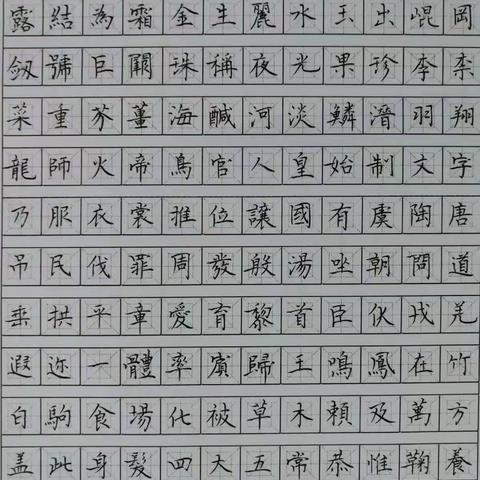 露結為霜金生麗水玉出崐岡
劔號巨闕珠稱夜光果珍李柰
菜重芥薑海鹹河淡鱗潛羽翔
龍師火帝鳥官人皇始制文字
乃服衣裳推位讓國有虞陶唐
吊民伐罪周發殷湯坐朝問道
垂拱平章愛育黎首臣伏戎羌
遐迩一體率賓歸王鳴鳳在竹
白駒食場化被草木賴及萬方
盖此身髮四大五常恭惟鞠養